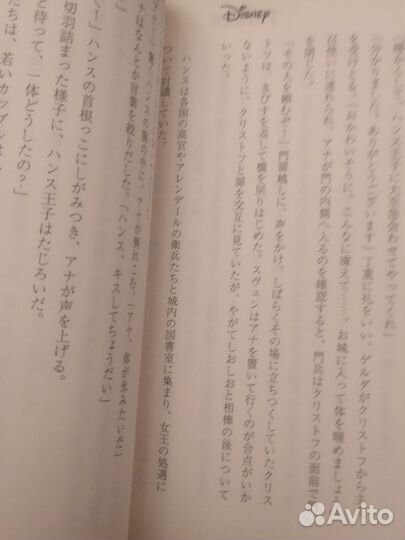 Disney
騒がして、ハンス王子に大至急会わせてやってくれ」
「分かりました。ありがとうございます」丁重に礼をいい、ゲルダがクリストフから主
を受けとる。「おかわいそうに。こんなに凍えて……。お城に入って体を暖めましょ
召使いに連れられ、アナが門の内側へ入るのを確認すると、門兵はクリストフの面前で
を閉じた。
「その人を頼むぞ！」門扉越しに、声をかけ、しばらくその場に立ちつくしていたクリス
トフは、きびすを返して橋を戻りはじめた。スヴェンはアナを置いて行くのが合点がいか
ないように、クリストフと扉を交互に見ていたが、やがてしおしおと相棒の後について
いった。
ハンスは各国の高官やアレンデールの衛兵たちと城内の図書室に集まり、女王の処遇に
ついて討議していた。
ハンスの腕の中に、アナが倒れこむ。「アナ、体が氷みたいだ」
アナはなんとか言葉を絞りだした。「ハンス、キスしてちょうだい」
ー！」ハンスの首根っこにしがみつき、アナが声を上げる。
切羽詰まった様子に、ハンス王子はたじろいだ。
と待って、一体どうしたの？」
たちは、若いカップルは
Avito